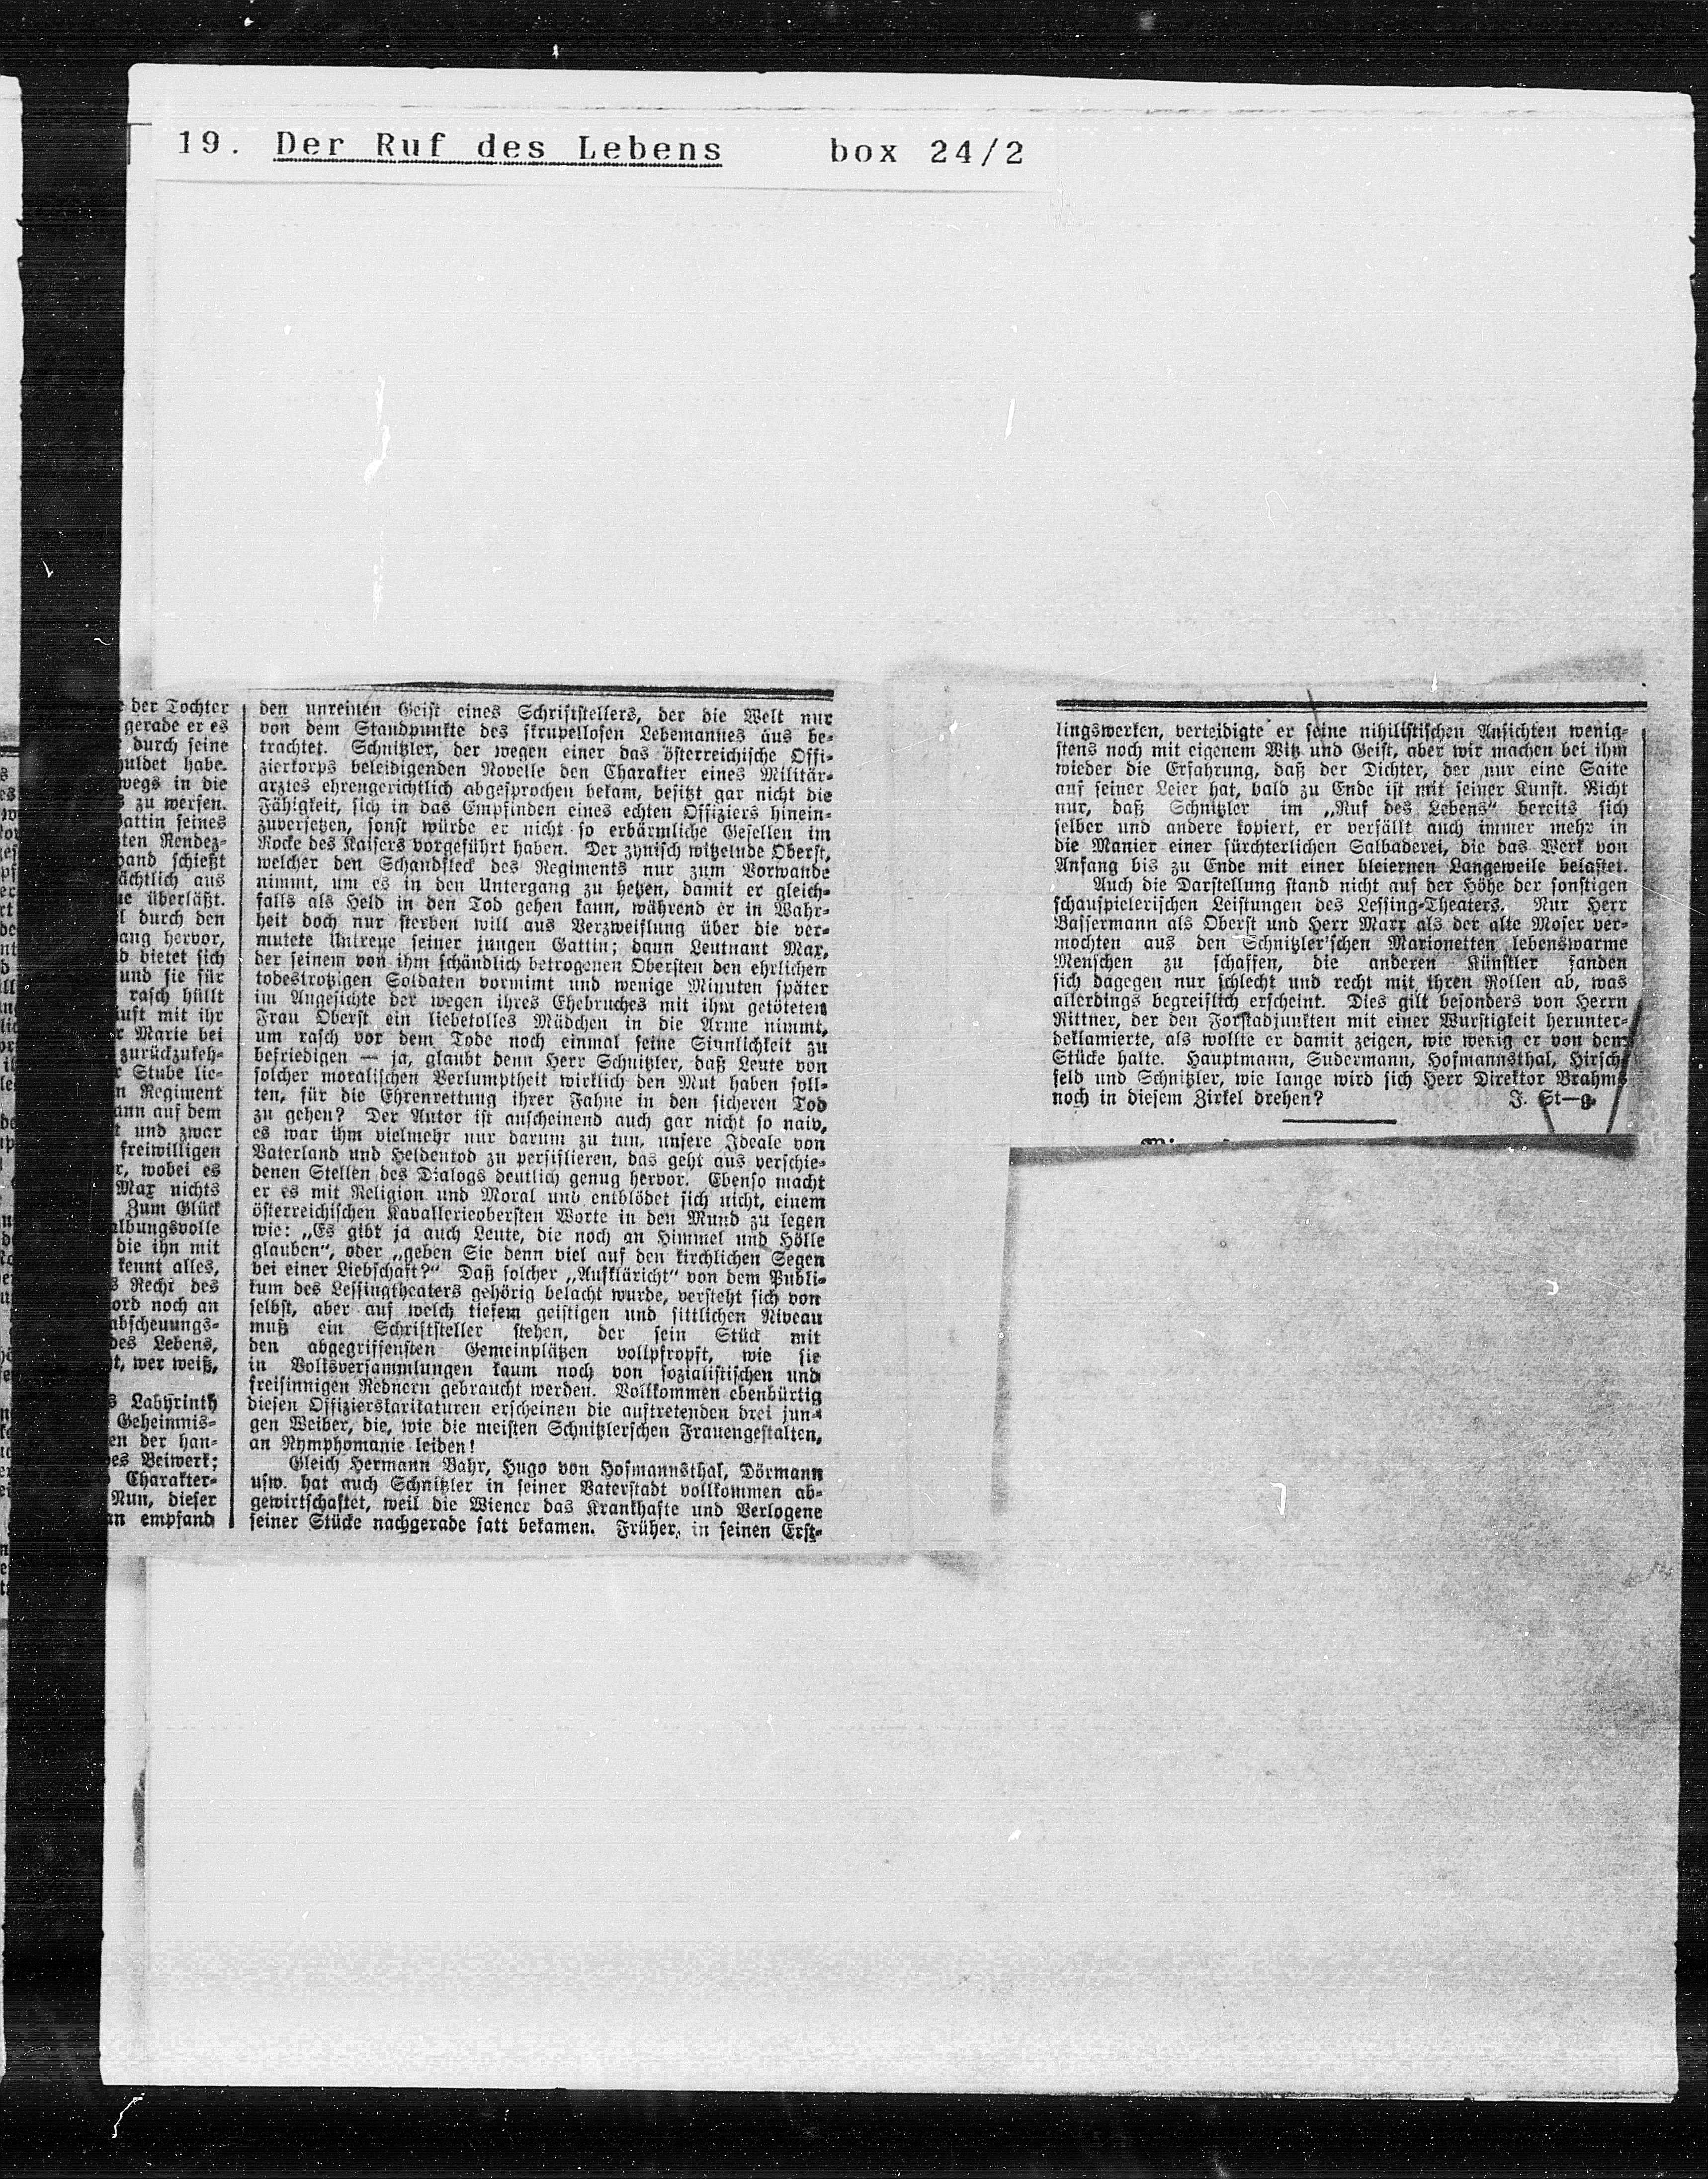 19. Der Ruf des Lebens box 24/2
der Tochter
gerade er es
durch seine
huldet habe.
wegs in die
zu werfen.
Gattin seines
ten Rendez-
hand schießt
ächtlich aus
überläßt.
durch den
ang hervor,
bietet sich
und sie für
rasch hüllt
mit ihr
Marie bei
zurückzukeh-
Stube lie-
Regiment
ann auf dem
und zwar
freiwilligen
wobei es
Max nichts
Zum Glück
albungsvolle
die ihn mit
kennt alles,
Recht des
ord noch an
abscheuungs-
des Lebens,
wer weiß,
Labyrinth
Geheimnis-
der han-
Beiwerk;
Charakter-
Nun, dieser
empfand
den unreinen Geist eines Schriftstellers, der die Welt nur
von dem Standpunkte des skrupellosen Lebemannes aus be-
trachtet. Schnitzler, der wegen einer das österreichische Offi-
zierkorps beleidigenden Novelle den Charakter eines Militär-
arztes ehrengerichtlich abgesprochen bekam, besitzt gar nicht die
Fähigkeit, sich in das Empfinden eines echten Offiziers hinein-
zuversetzen, sonst würde er nicht so erbärmliche Gesellen im
Rocke des Kaisers vorgeführt haben. Der zynisch witzelnde Oberst,
welcher den Schandfleck des Regiments nur zum Vorwande
nimmt, um es in den Untergang zu hetzen, damit er gleich-
falls als Held in den Tod gehen kann, während er in Wahr-
heit doch nur sterben will aus Verzweiflung über die ver-
mutete Untreue seiner jungen Gattin; dann Leutnant Max,
der seinem von ihm schändlich betrogenen Obersten den ehrlichen
todestrotzigen Soldaten vormimt und wenige Minuten später
im Angesichte der wegen ihres Ehebruches mit ihm getöteten
Frau Oberst ein liebetolles Mädchen in die Arme nimmt,
um rasch vor dem Tode noch einmal seine Sinnlichkeit zu
befriedigen — ja, glaubt denn Herr Schnitzler, daß Leute von
solcher moralischen Verlumptheit wirklich den Mut haben soll-
ten, für die Ehrenrettung ihrer Fahne in den sicheren Tod
zu gehen? Der Autor ist anscheinend auch gar nicht so naiv,
es war ihm vielmehr nur darum zu tun, unsere Ideale von
Vaterland und Heldentod zu persiflieren, das geht aus verschie-
denen Stellen des Dialogs deutlich genug hervor. Ebenso macht
er es mit Religion und Moral und entblödet sich nicht, einem
österreichischen Kavallerieobersten Worte in den Mund zu legen
wie: „Es gibt ja auch Leute, die noch an Himmel und Hölle
glauben“, oder „geben Sie denn viel auf den kirchlichen Segen
bei einer Liebschaft?“ Daß solcher „Aufkläricht“ von dem Publi-
kum des Lessingtheaters gehörig belacht wurde, versteht sich von
selbst, aber auf welch tiefem geistigen und sittlichen Niveau
muß ein Schriftsteller stehen, der sein Stück mit
den abgegriffensten Gemeinplätzen vollpfropft, wie sie
in Volksversammlungen kaum noch von sozialistischen und
freisinnigen Rednern gebraucht werden. Vollkommen ebenbürtig
diesen Offizierskarikaturen erscheinen die auftretenden drei jun-
gen Weiber, die, wie die meisten Schnitzlerschen Frauengestalten,
an Nymphomanie leiden!
Gleich Hermann Bahr, Hugo von Hofmannsthal, Dörmann
usw. hat auch Schnitzler in seiner Vaterstadt vollkommen ab-
gewirtschaftet, weil die Wiener das Krankhafte und Verlogene
seiner Stücke nachgerade satt bekamen. Früher, in seinen Erst-
lingswerken, verteidigte er seine nihilistischen Ansichten wenig-
stens noch mit eigenem Witz und Geist, aber wir machen bei ihm
wieder die Erfahrung, daß der Dichter, der nur eine Saite
auf seiner Leier hat, bald zu Ende ist mit seiner Kunst. Nicht
nur, daß Schnitzler im „Ruf des Lebens“ bereits sich
selber und andere kopiert, er verfällt auch immer mehr in
die Manier einer fürchterlichen Salbaderei, die das Werk von
Anfang bis zu Ende mit einer bleiernen Langeweile belastet.
Auch die Darstellung stand nicht auf der Höhe der sonstigen
schauspielerischen Leistungen des Lessing-Theaters. Nur Herr
Bassermann als Oberst und Herr Marr als der alte Moser ver-
mochten aus den Schnitzler'schen Marionetten lebenswarme
Menschen zu schaffen, die anderen Künstler fanden
sich dagegen nur schlecht und recht mit ihren Rollen ab, was
allerdings begreiflich erscheint. Dies gilt besonders von Herrn
Rittner, der den Forstadjunkten mit einer Wurstigkeit herunter-
deklamierte, als wollte er damit zeigen, wie wenig er von dem
Stücke halte. Hauptmann, Sudermann, Hofmannsthal, Hirsch-
feld und Schnitzler, wie lange wird sich Herr Direktor Brahms
noch in diesem Zirkel drehen? J. St—g.